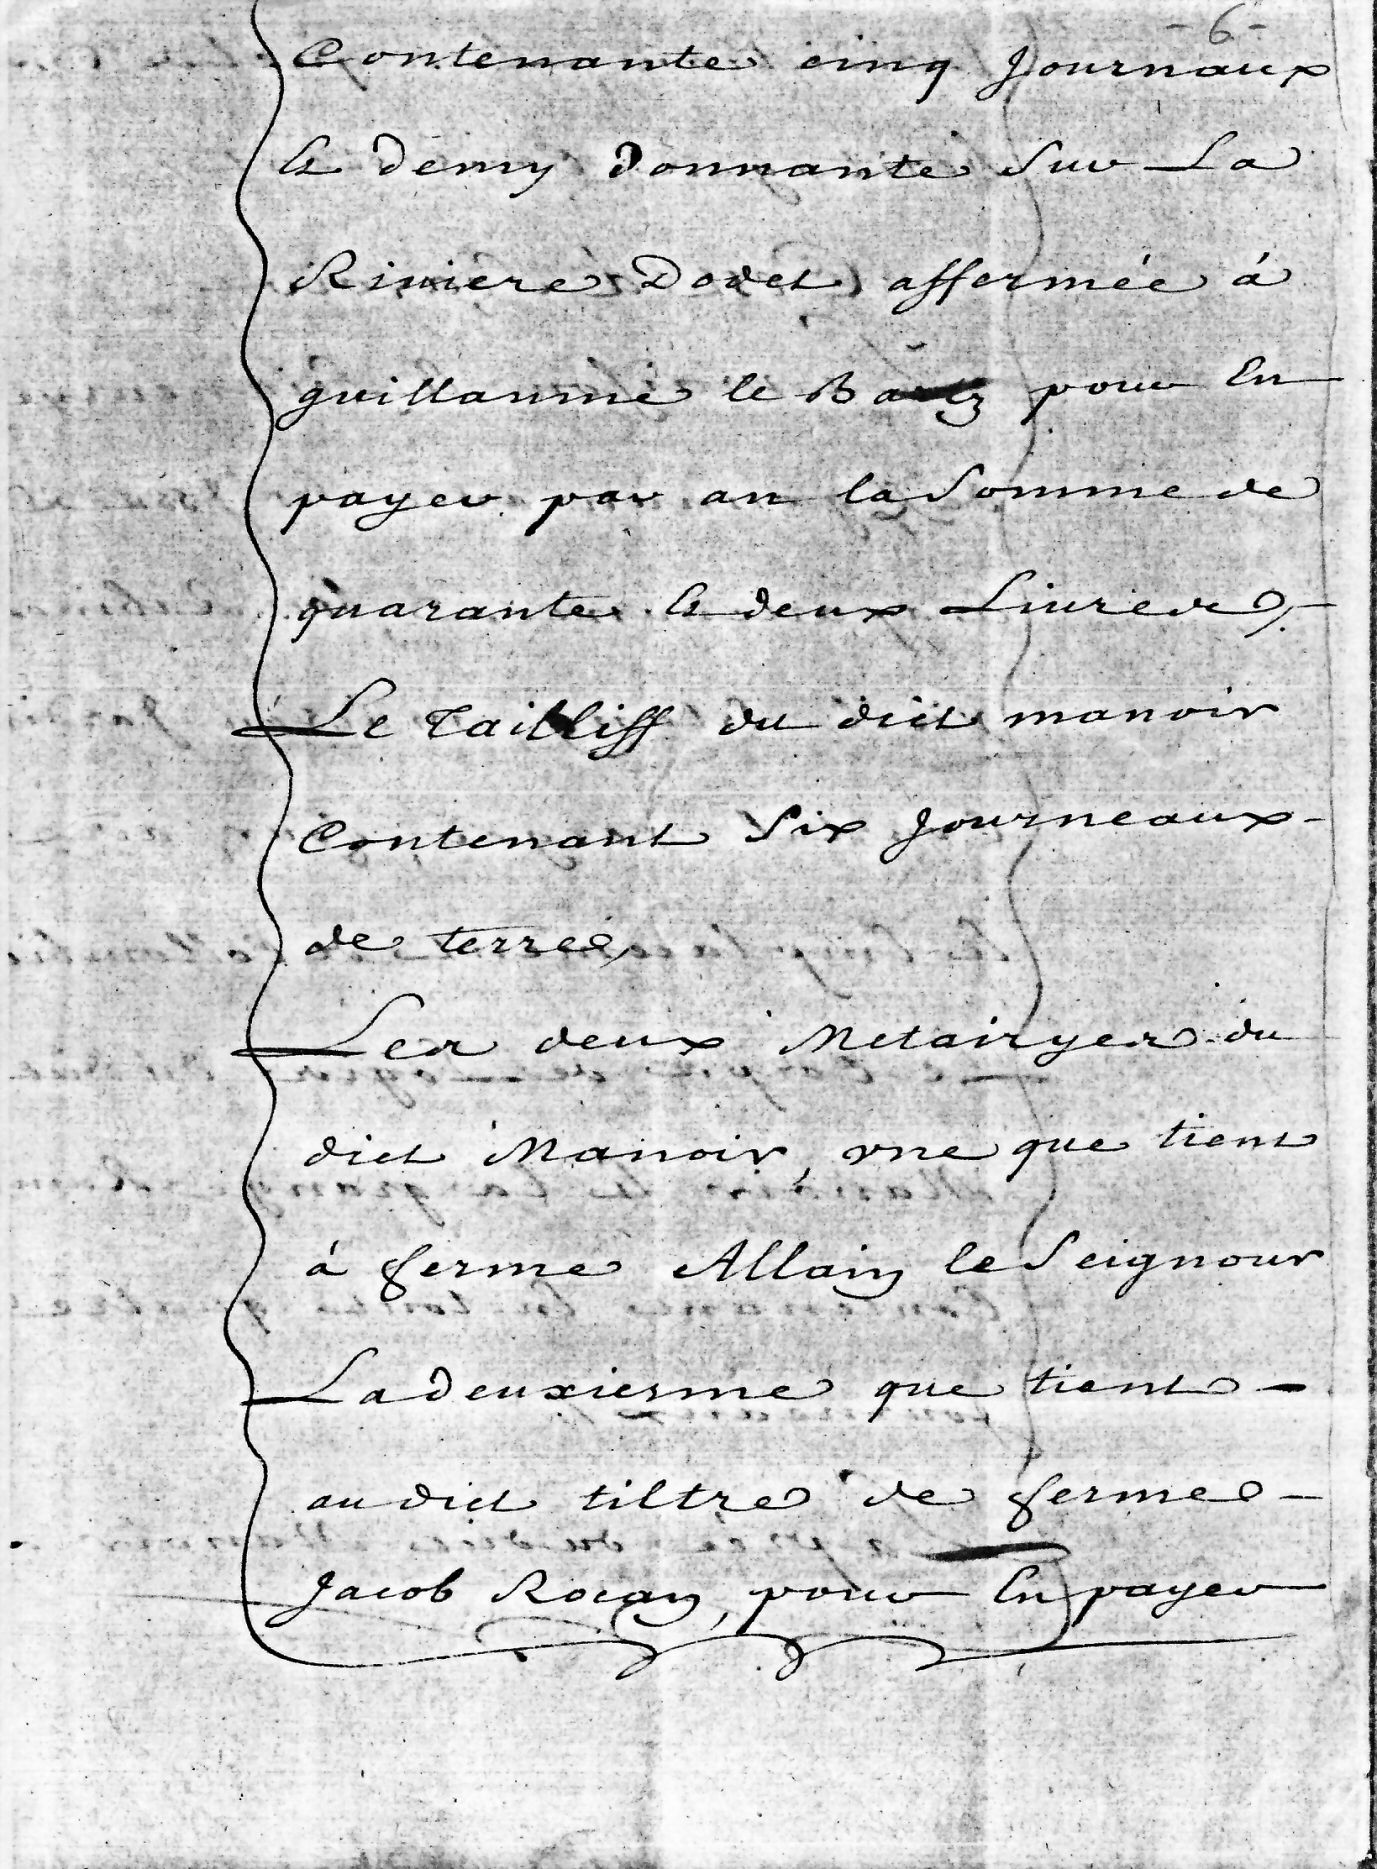 - 6 -
Contenante cinq Journaux
Et demy Donnante Sur La
Riviere Dodet affermée à
guillaume le pour En
payer par an la Somme de
quarante Et deux Livres,
Le Tailliff du dict manoir
Contenant Six Journeaux
de terre,
Les deux Metairyes du
dict Manoir, vne que tient
à ferme Allain le Seignour
La deuxiesme que tient
au dict tiltre de ferme
Jacob , pour En payer